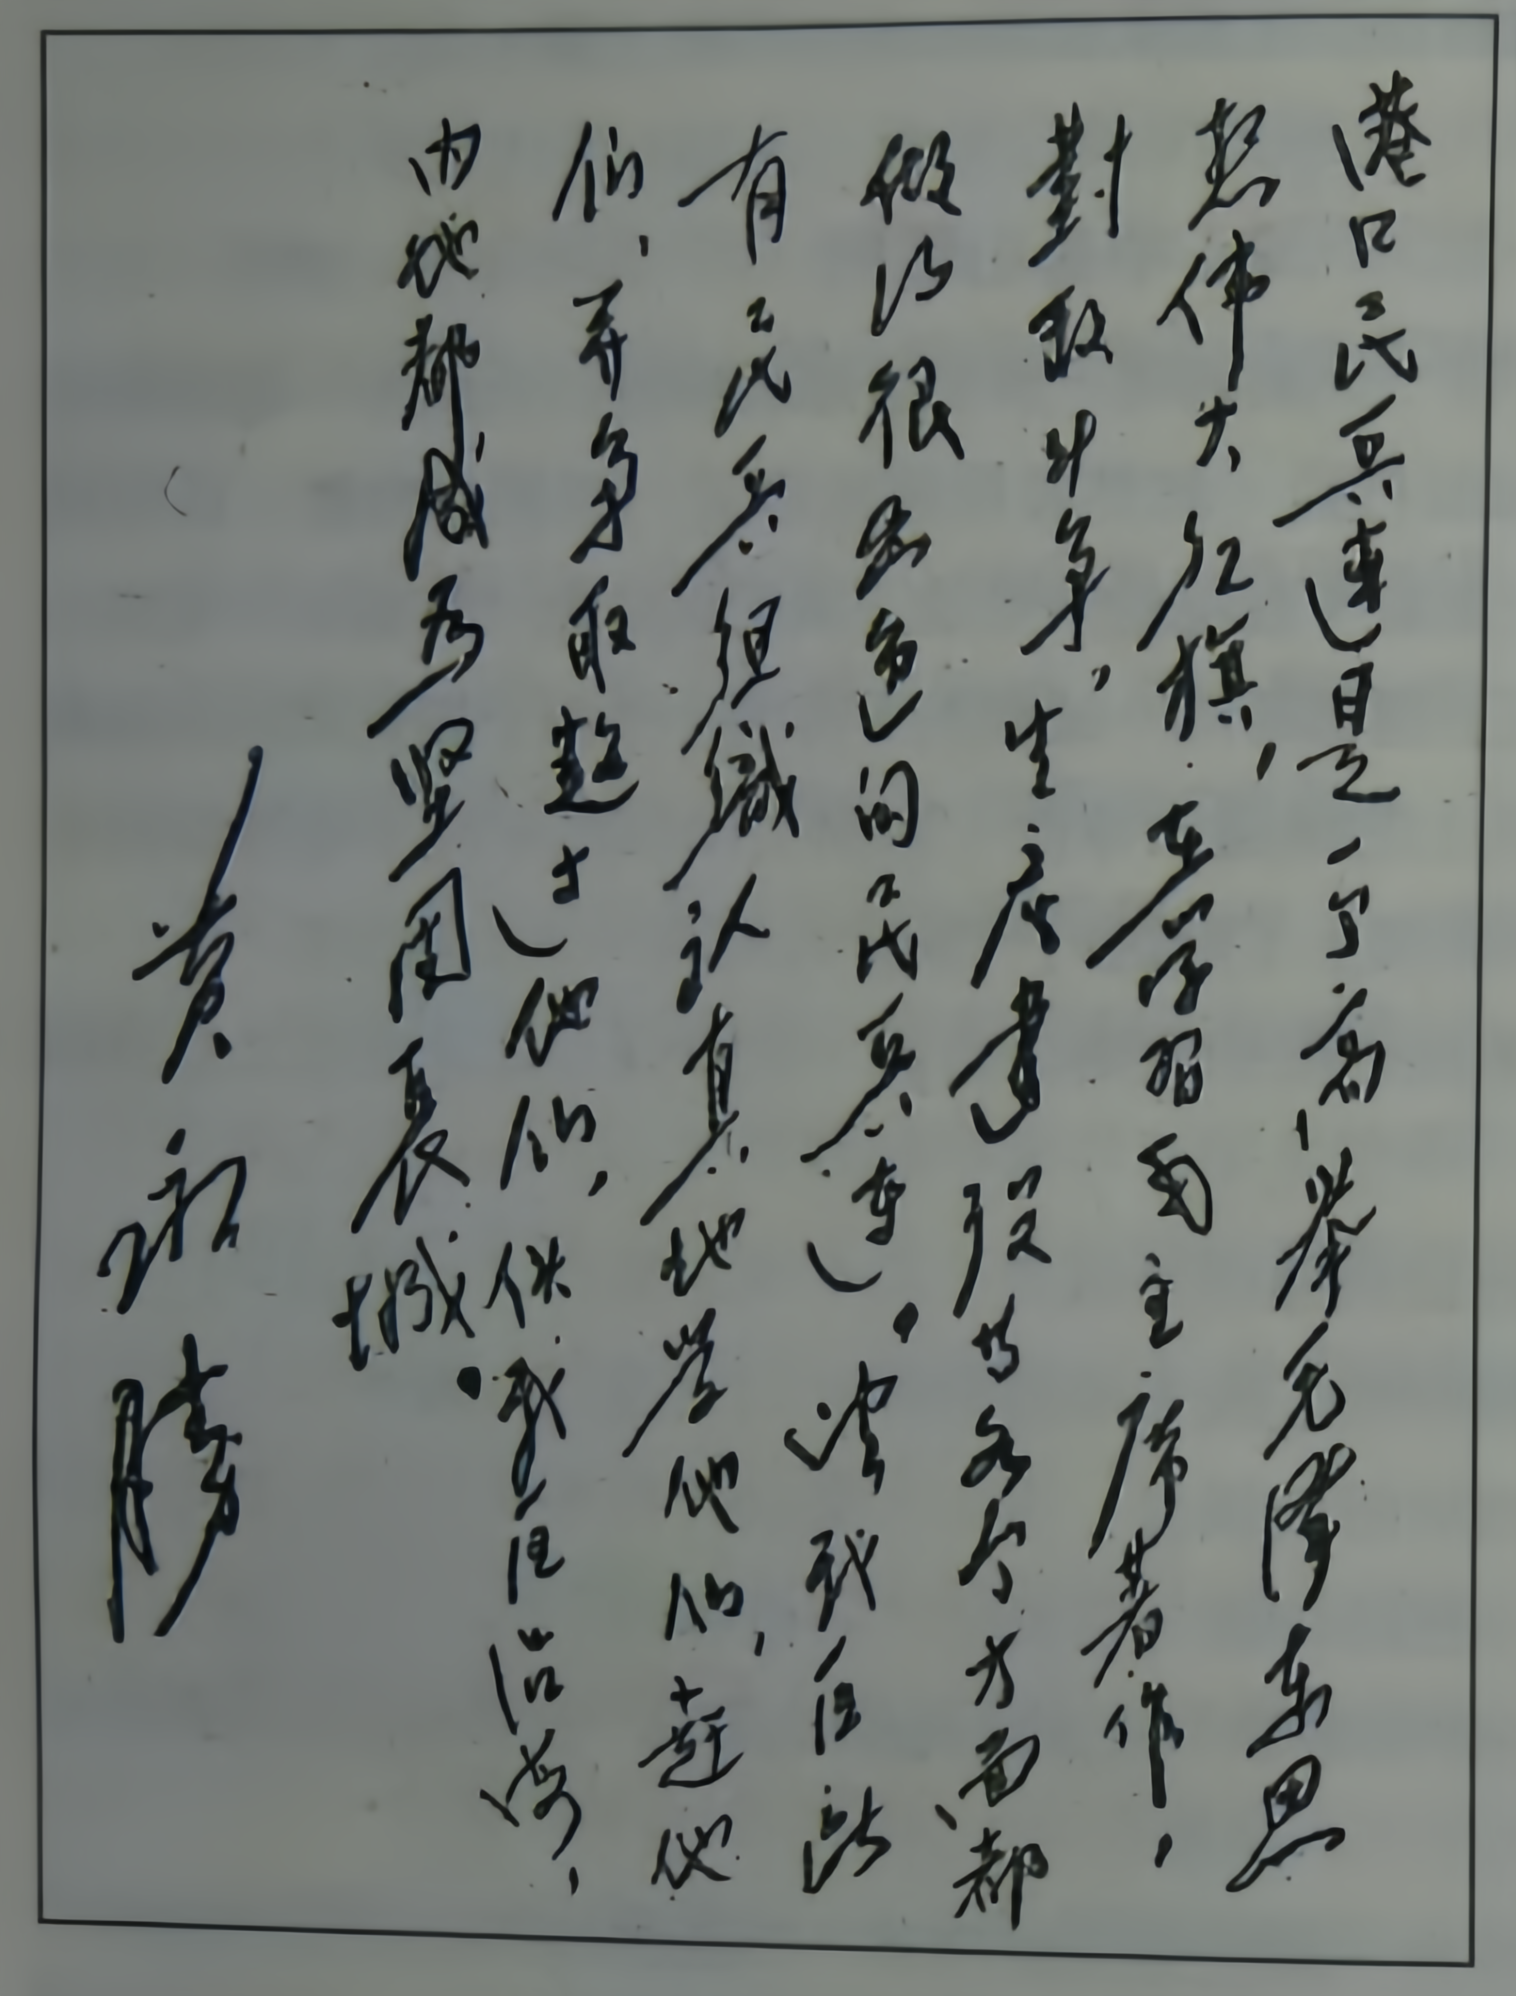 港口民兵連是一个高举毛澤东思
想伟大红旗，在学習毛主席著作，
對敌斗争，生产建設等各个方面都
做得很出色的民兵連。望我区所
有民兵组織认真地学他们，赶他
们，并争取趕过他们，使我区沿海、
内地都成为坚固長城。
黄永勝